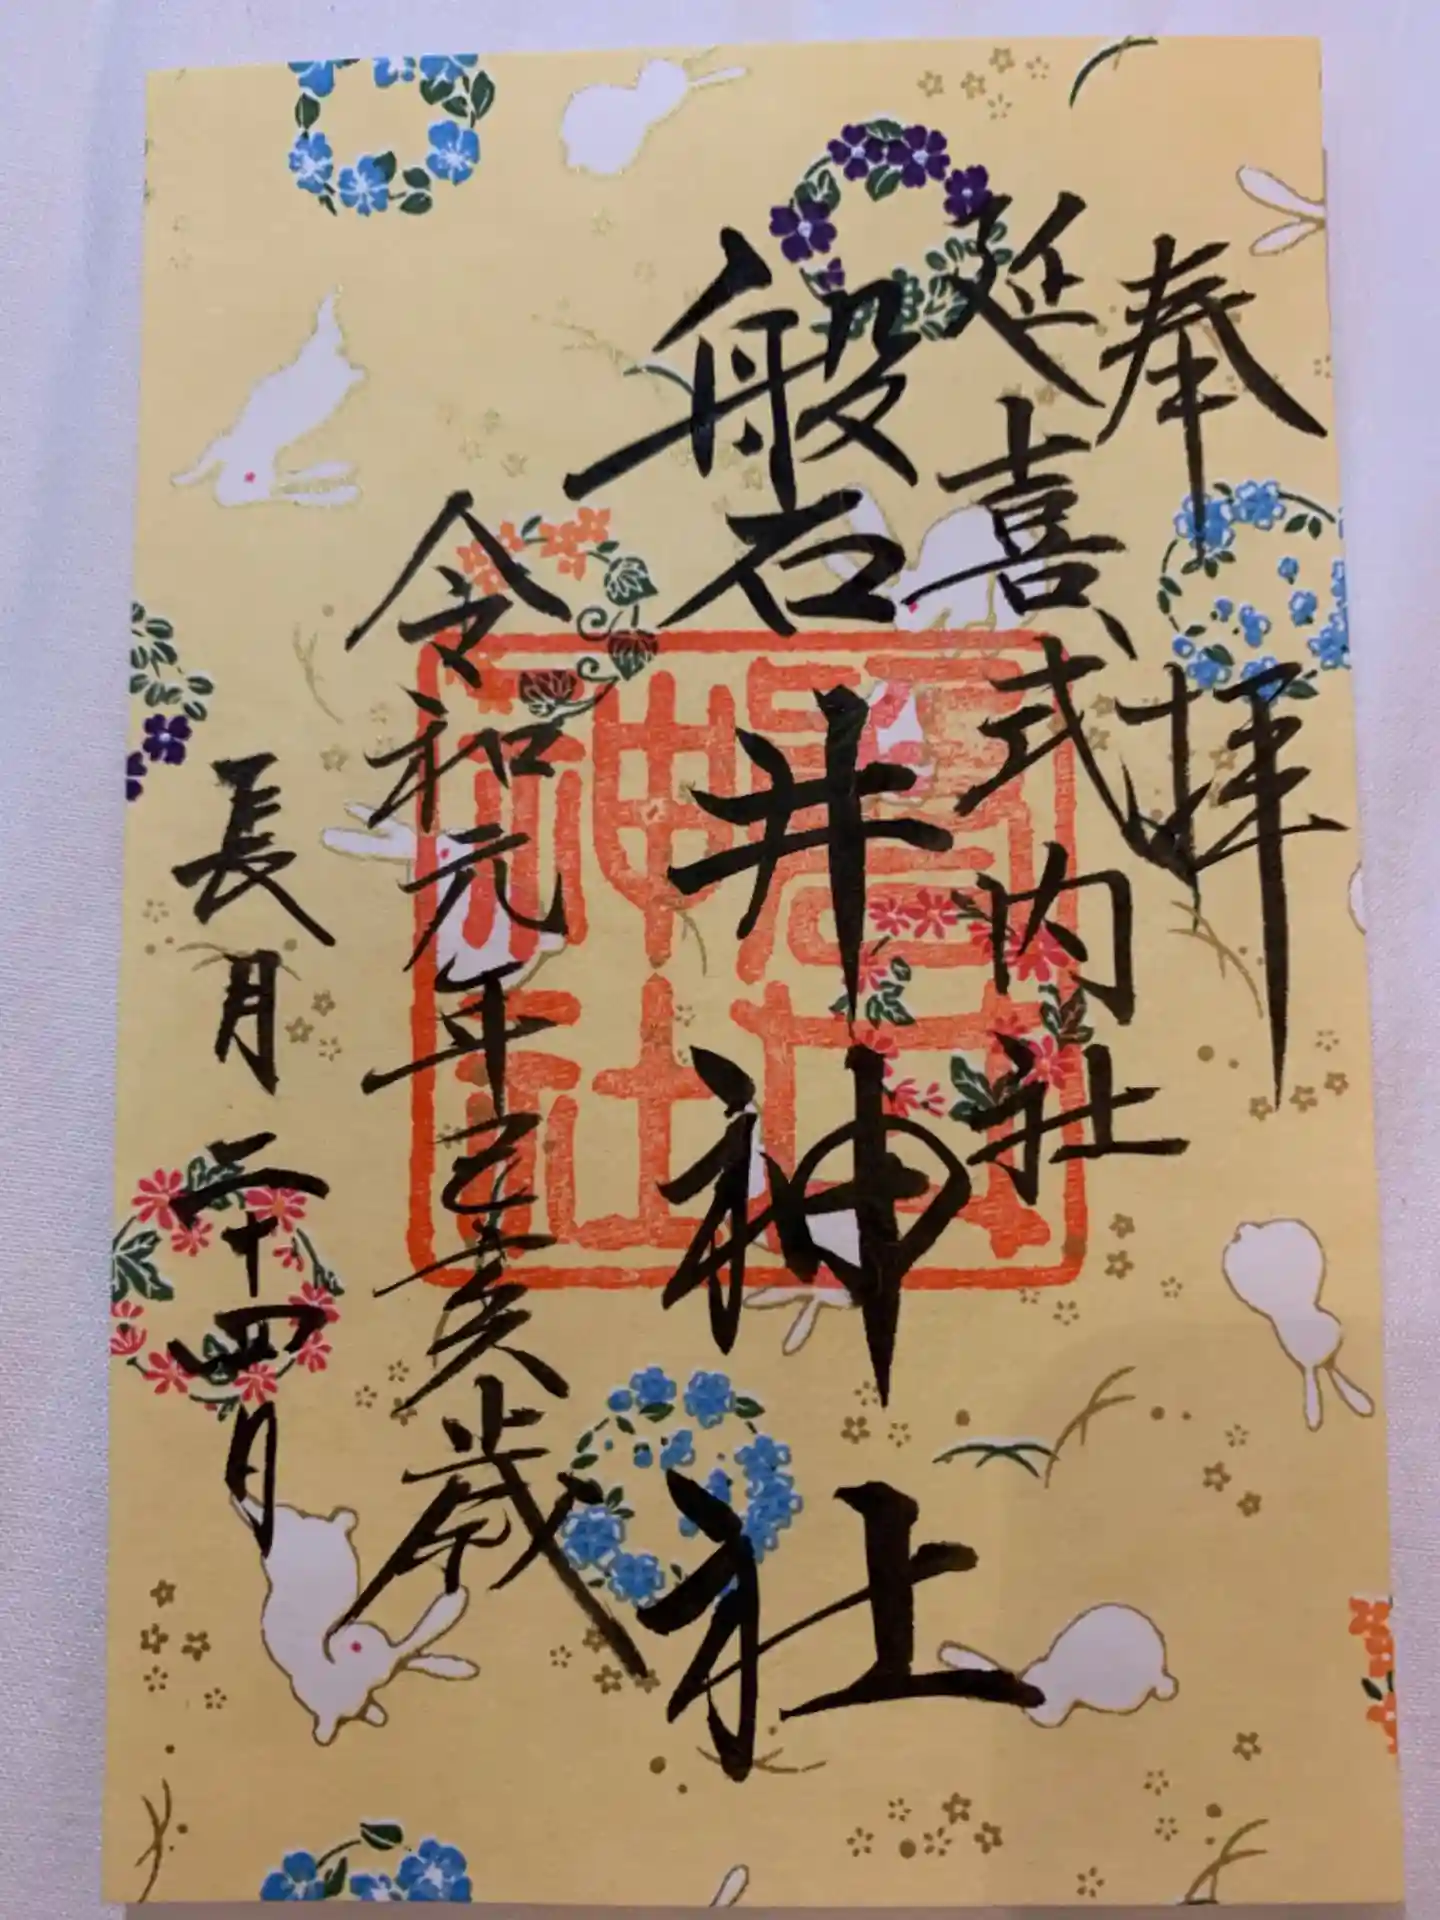 奉拝
延喜式内社
磐井神社
令和元年己亥歳
長月二十四日
磐井神社